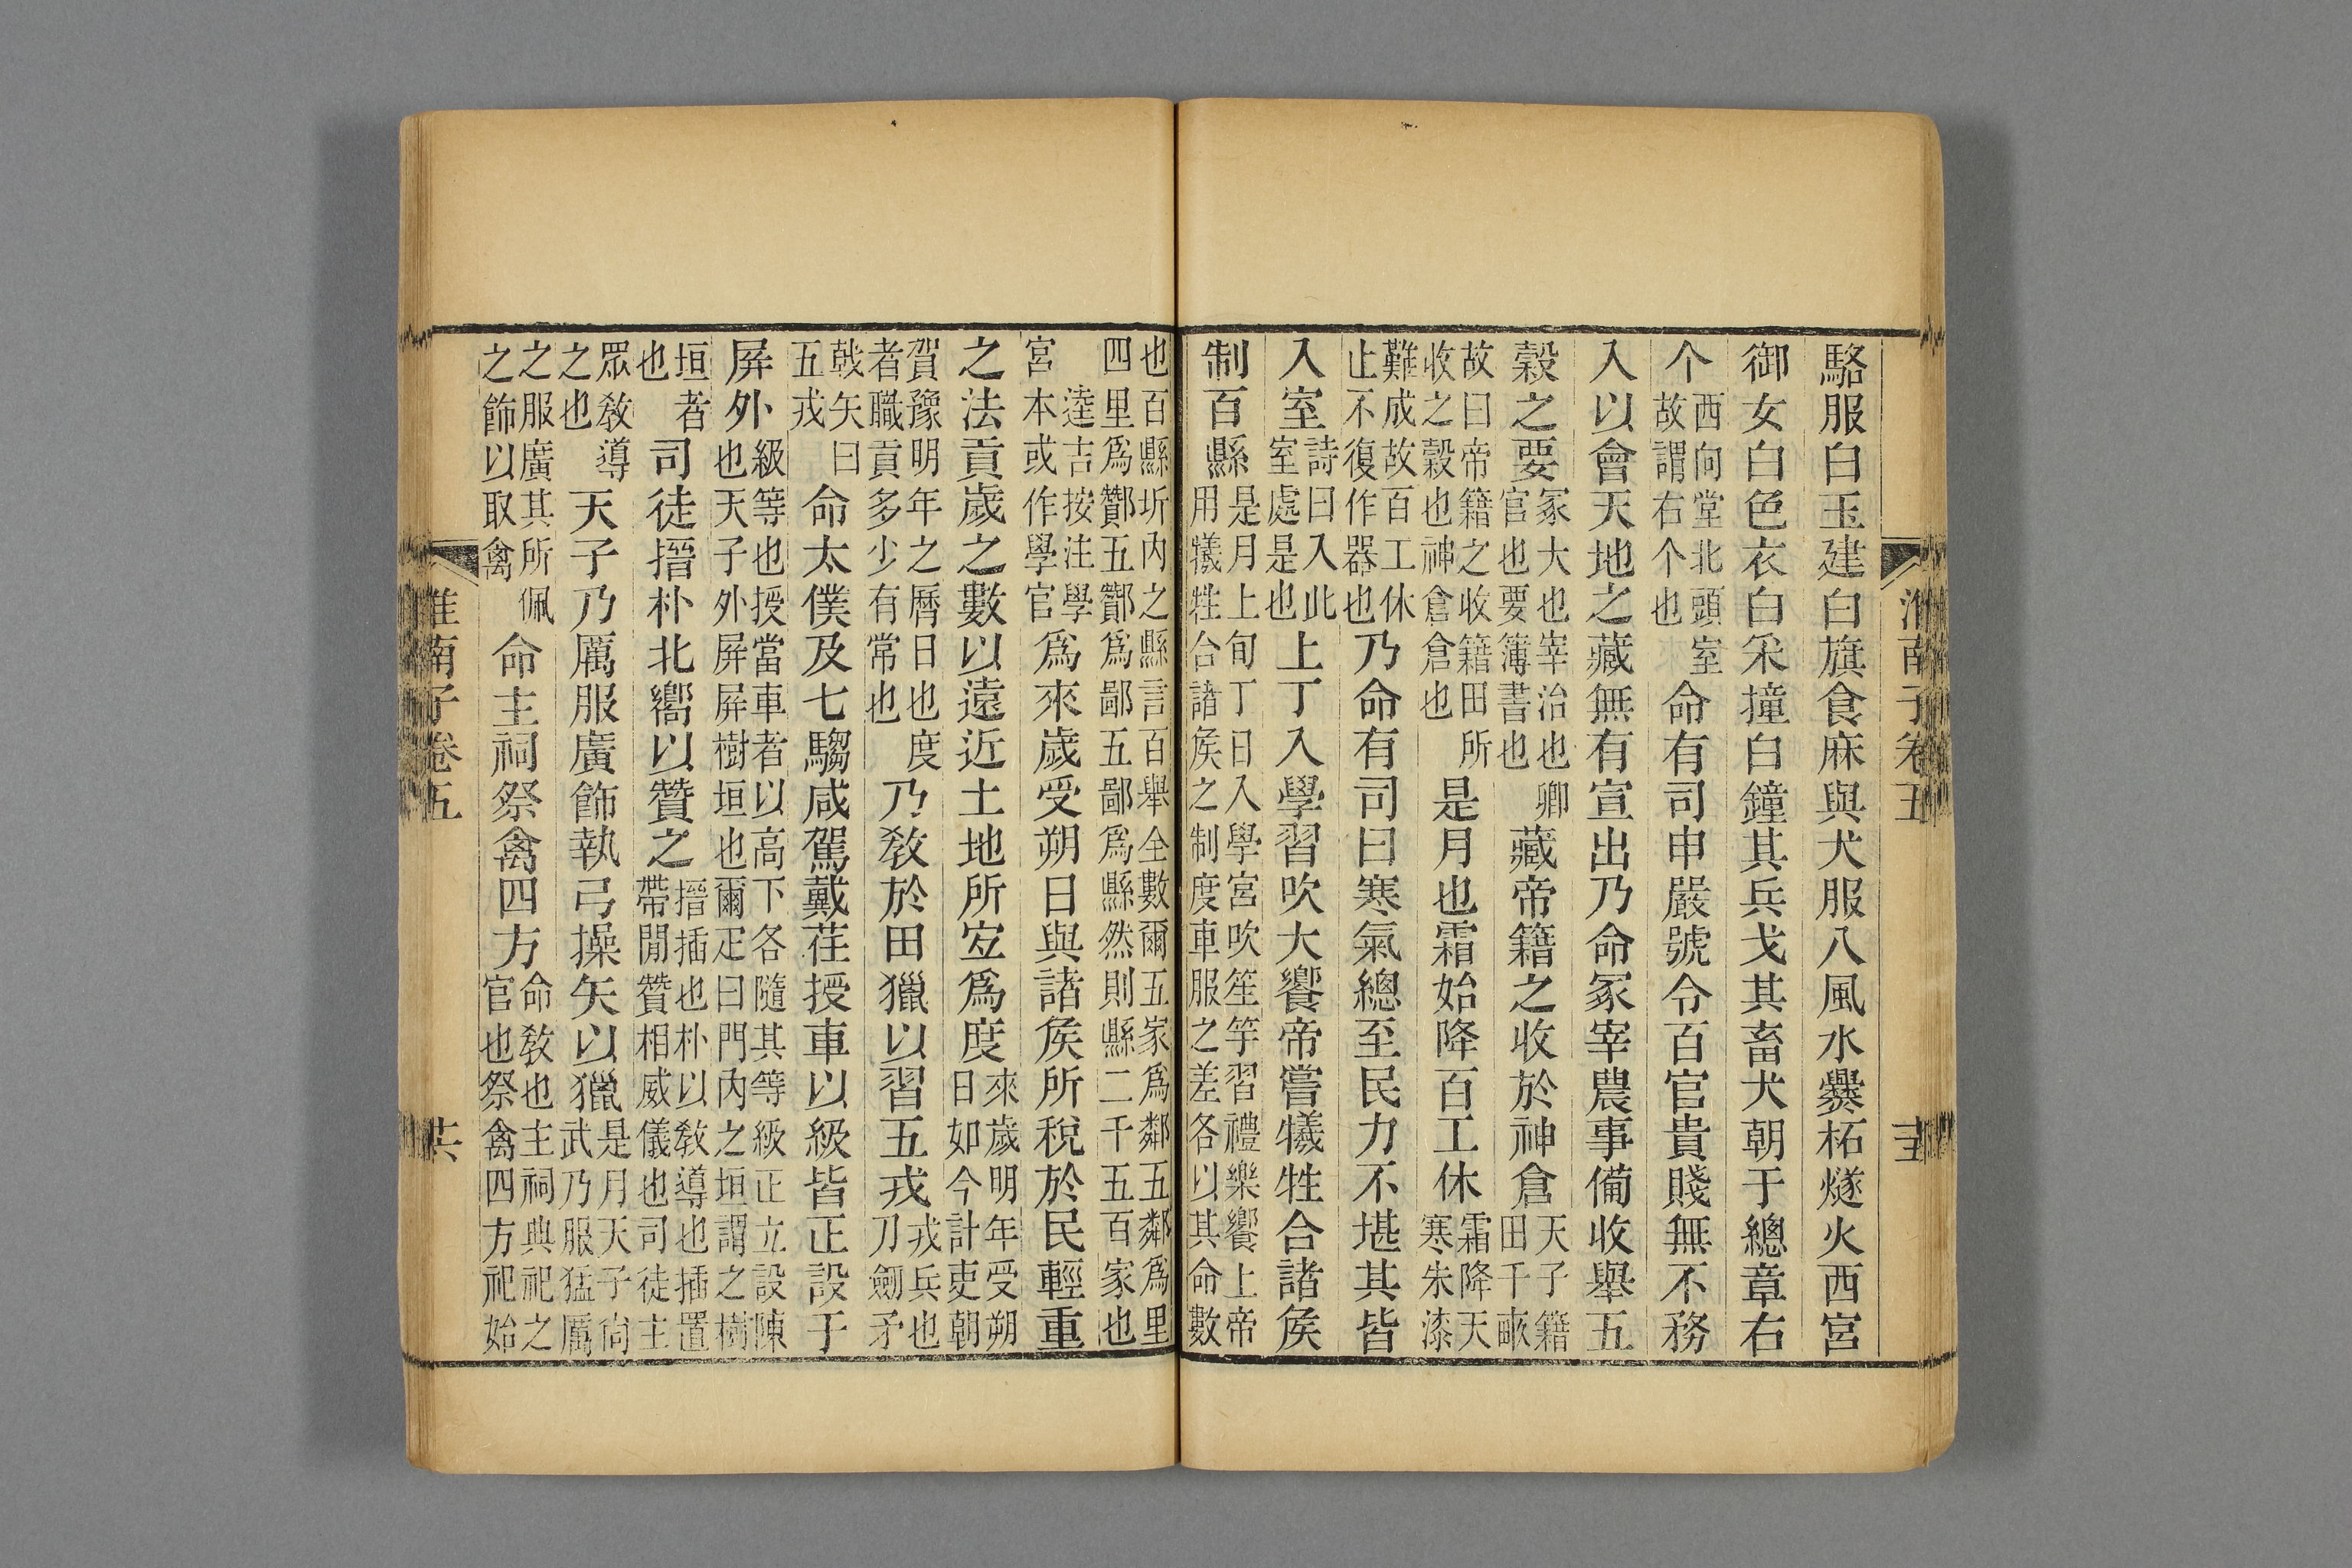 淮南子卷五
駱服白玉建白旗食麻與犬服八風水爨柘燧火西宮
御女白色衣白采撞白鐘其兵戈其畜犬朝于總章右
个西向堂北頭室故謂右个也命有司申嚴號令百官貴賤無不務
入以會天地之藏無有宣出乃命冢宰農事備收舉五
穀之要冢大也宰治也卿官也要簿書也藏帝籍之收於神倉天子籍田千畝
故曰帝籍之收籍田所收之穀也神倉倉也是月也霜始降百工休霜降天寒朱漆
難成故百工休止不復作器也乃命有司曰寒氣總至民力不堪其皆
入室詩曰入此室處是也上丁入學習吹大饗帝嘗犧牲合諸矦
制百縣是月上旬丁日入學宮吹笙竽習禮樂饗上帝用犧牲合諸矦之制度車服之差各以其命數
也百縣圻內之縣言百舉全數爾五家爲鄰五鄰爲里四里爲酇五酇爲鄙五鄙爲縣然則縣二千五百家也
逵吉按注學宮本或作學官爲來歲受朔日與諸矦所稅於民輕重
之法貢歲之數以遠近土地所宐爲度來歲明年受朔日如今計吏朝
賀豫明年之曆日也度者職貢多少有常也乃敎於田獵以習五戎戎兵也刀劒矛
戟矢曰五戎命太僕及七騶咸駕戴荏授車以級皆正設于
屛外級等也授當車者以高下各隨其等級正立設陳也天子外屛屛樹垣也爾疋曰門內之垣謂之樹
垣者也司徒搢朴北嚮以贊之搢插也朴以敎導也插置帶閒贊相威儀也司徒主
眾敎導之也天子乃厲服廣飾執弓操矢以獵是月天子尙武乃服猛厲
之服廣其所佩之飾以取禽命主祠祭禽四方命敎也主祠典祀之官也祭禽四方祀始
淮南子卷五
共